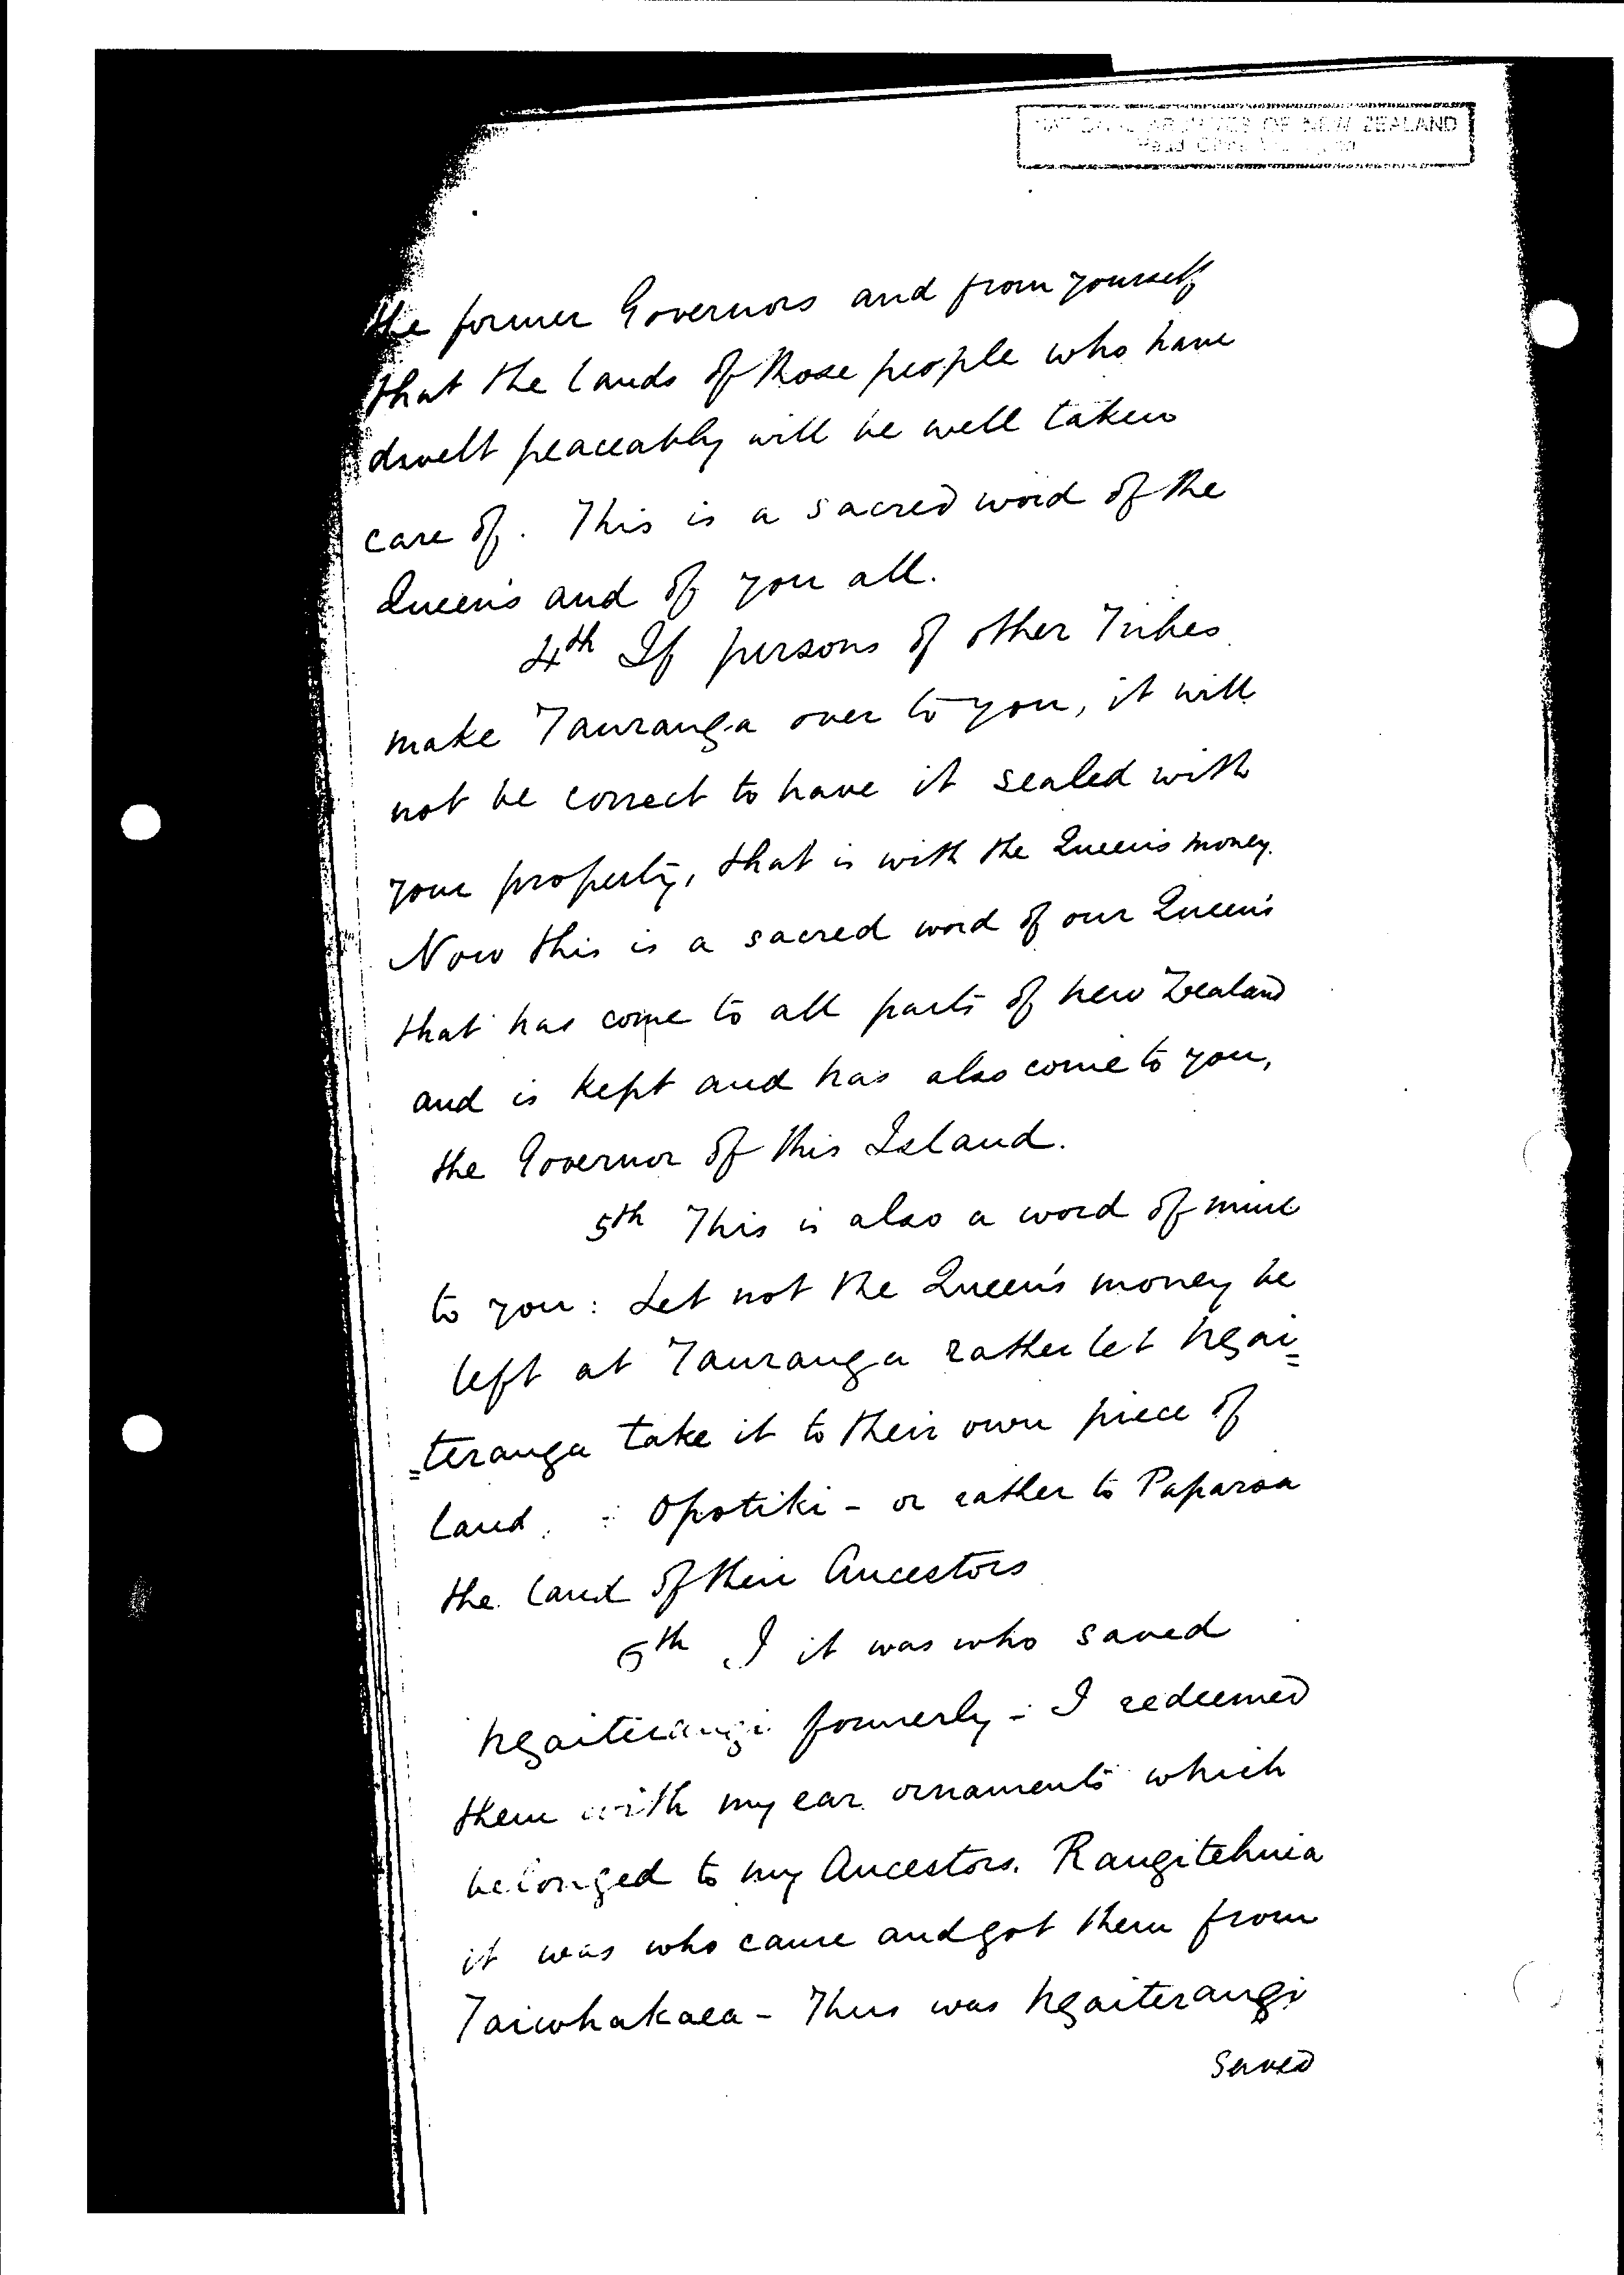 NATIONAL ARCHIVES OF NEW ZEALAND
Head Office
the former Governors and from yourself
that the lands of those people who have
dwelt peaceably will be well taken
care of. This is a sacred word of the
Queen's and of you all.
4th If persons of other Tribes
make Tauranga over to you, it will
not be correct to have it sealed with
your property, that is with the Queen's money.
Now this is a sacred word of our Queen's
that has come to all parts of New Zealand
and is kept and has also come to you,
the Governor of this Island.
5th This is also a word of mine
to you: Let not the Queen's money be
left at Tauranga rather let Ngai=
=teranga take it to their own piece of
land. - Opotiki - or rather to Paparoa
the land of their Ancestors
6th I it was who saved
Ngaiterangi formerly - I redeemed
them with my ear ornaments which
belonged to my Ancestors. Rangitehuia
it was who came and got them from
Taiwhakaea - Thus was Ngaiterangi
saved